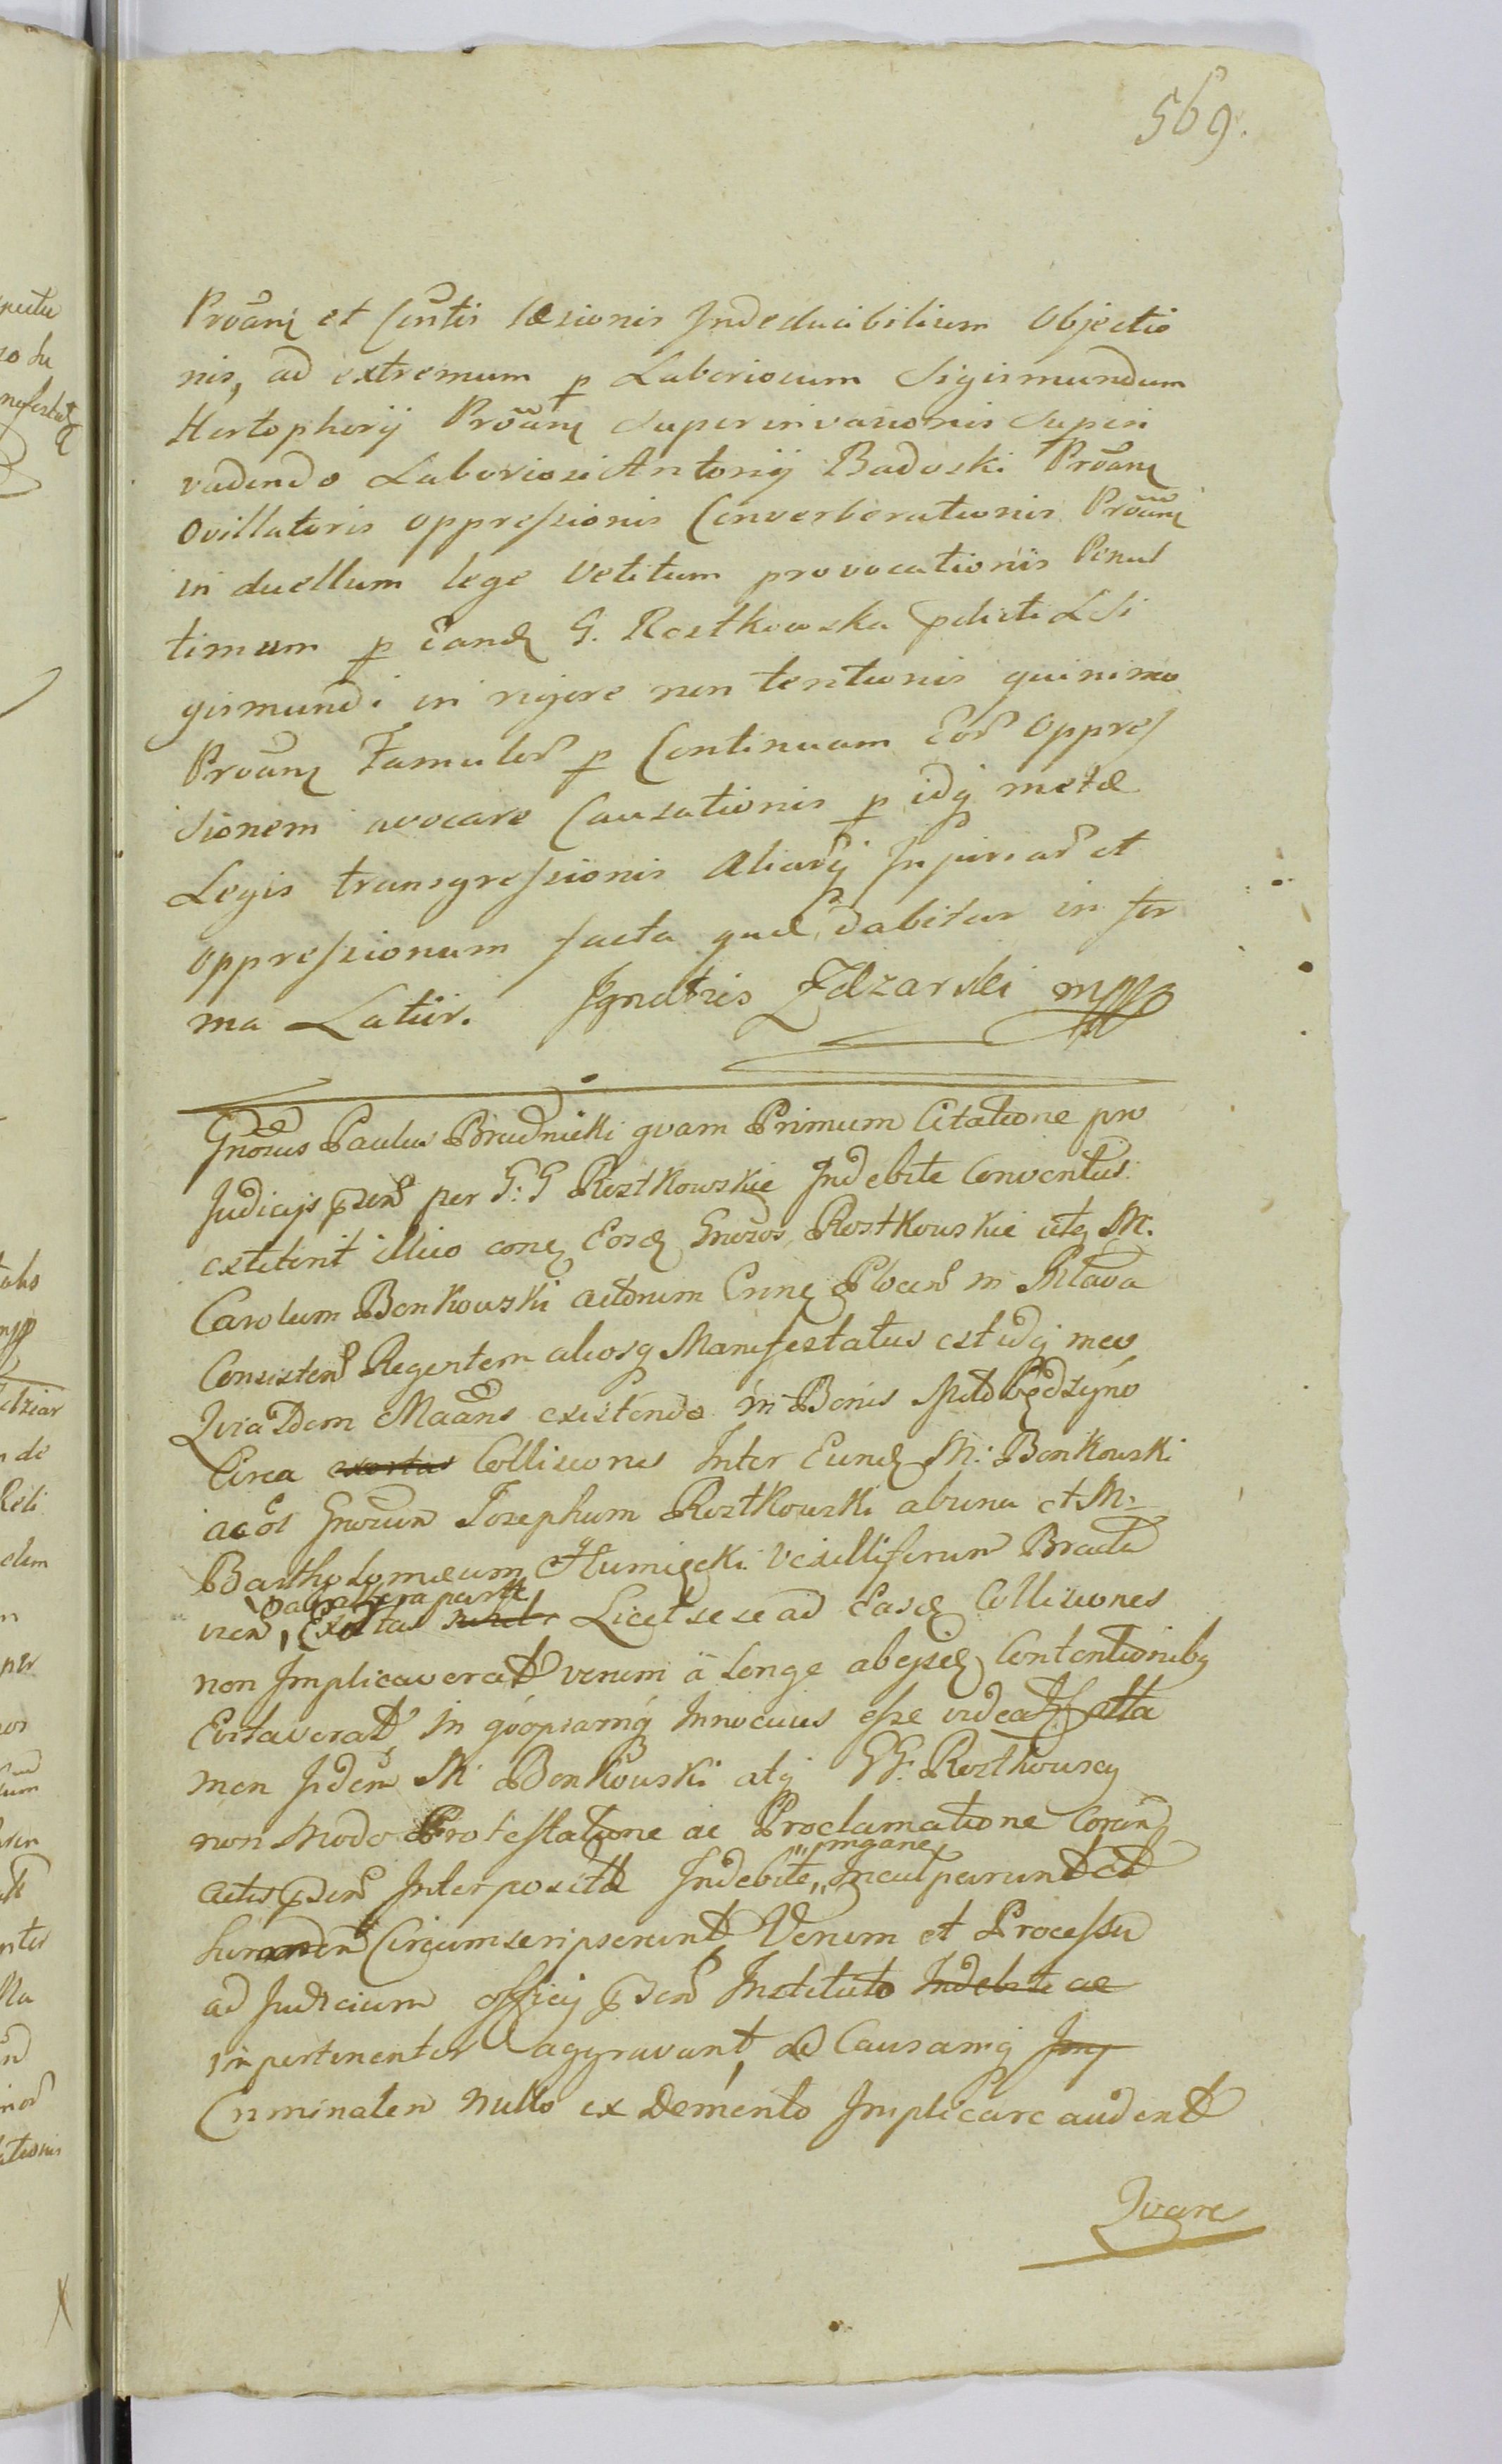 569.
Prõanę et Contis læsionis Indeducibilium Objectio
nis, ad extremum p Laboriosum Sigismundum
Hertophery Prõanę superinvasionis superi
vadendo Laboriosi Antonij Badoski Prõanę
Ovillatoris oppressionis Converberationis Prõanę
in duellum lege Vetitum provocationis Penul
timum p Eandę G. Rostkowska pdicti L Si
gismundi in rigore non tentionis quinimo
Prõanę Famulor p Continuam Eor oppres
sionem avocare Causationis p idq metæ
Legis transgressionis Aliarq Injuriar et
oppressionum facta quæ dabitur in for
ma Latiir. Ignatius Zdzarski mpp
Gnosus Paulus Brudnicki qvam Primum Citatione pro
Judicijs psen per G: G Rostkowskie Indebite Conventus
extiterit illico conę Eosdę Gnosos Rostkowskie atq M.
Carolum Bonkowski actorum Crinę Plocen in Mlava
Consisten Regentem aliosq Manifestatus est idq meo
Qvia Idem Maans existendo in Bonis Miłobędzyno
Circa exortas Collisiones Inter Eundę M: Bonkowski
ac õl Gnosum Josephum Rostkowski ab una et M:
Bartholomæum Humięcki Vexilliferum Bracla
vien, Exortas Licet sese ad Easdę Collisiones
ab altera parte
non Implicaverat verum à Longe ab ejsdę Contentionibq
Evitaverat in qóopiamq Innocuus esse videatr, atta
men Idem M: Bonkowski atq GG: Rostkowscy
non Modo Protestatione ac Proclamatione Coram
actis psen Interposita Indebite, Inculparunt et
Circumscripserunt Verum et Processu
ad Judicium officij psen Instituto Indebite ac
impertinenter aggravant, ad Causamq Imp
Criminalem nullo ex Demerito Implicare audent
Qvare